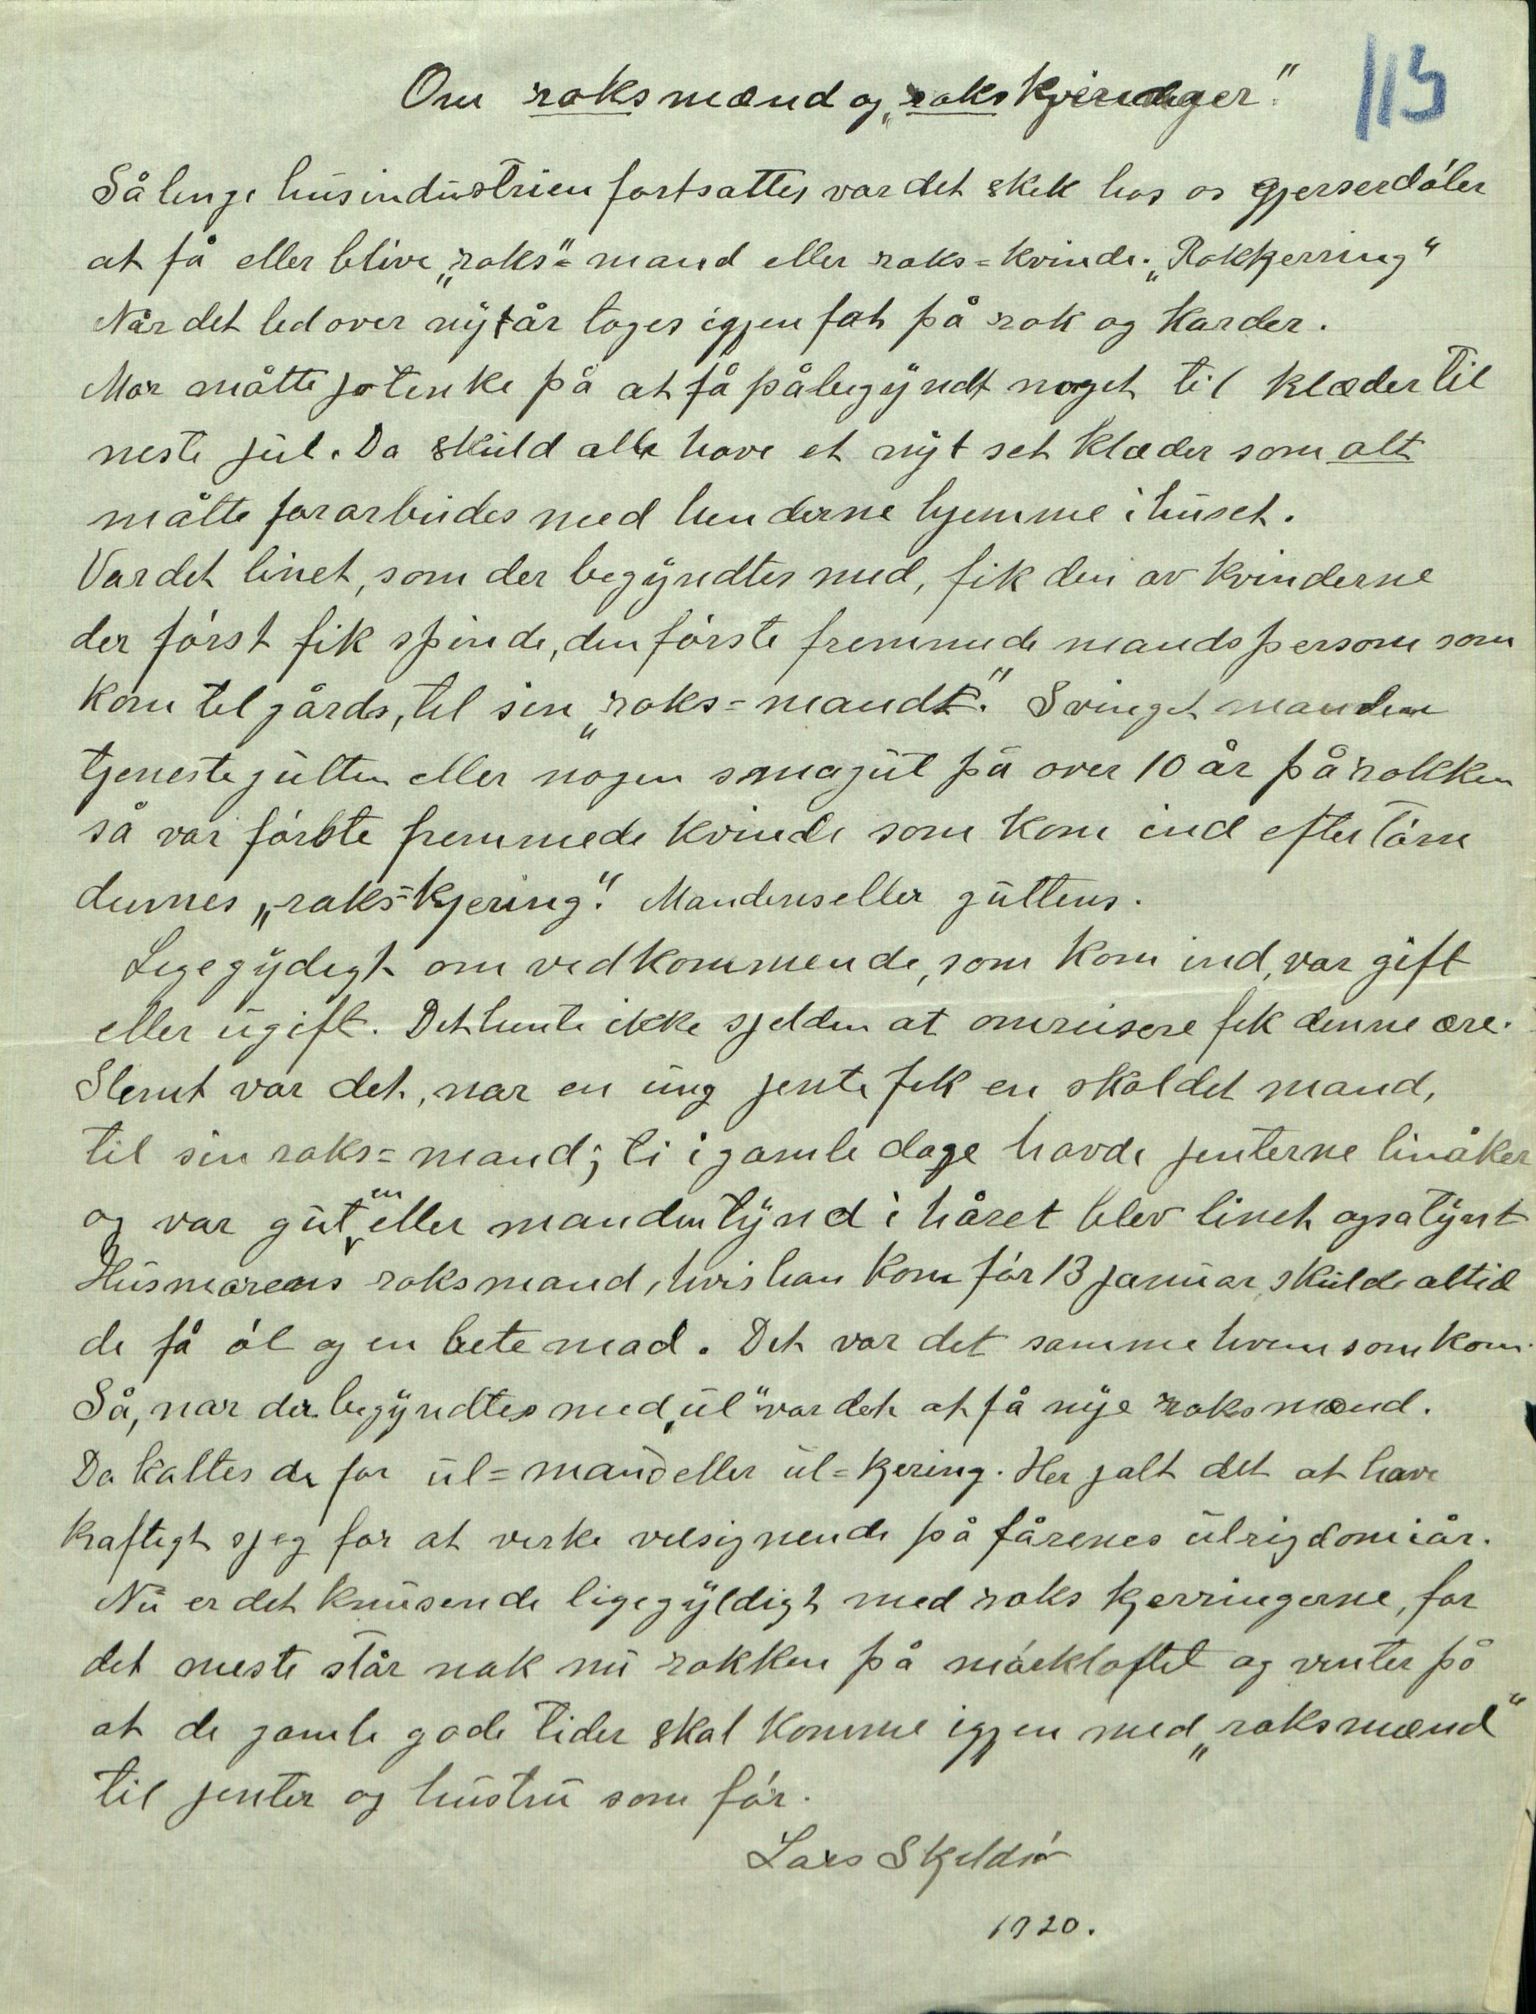 Om roksmænd og „rokskjeringer“
113
Så lenge husindustrien fortsattes var det skik hos os gjerserdøler
at få eller blive „roks“-mand eller roks-kvinde. „Rokkjerring“
Når det led over nytår toges igjen fat på rok og karder.
Mor måtte jo tenke på at få påbegyndt noget til klæder til
neste jul. Da skuld alle have et nyt set klæder som alt
måtte forarbeides med henderne hjemme i huset.
Var det linet, som der begyndtes med, fik den av kvinderne
der først fik spinde, den første fremmede mandsperson som
kom til gårds, til sin „roks-mand“. Svinget manden
tjenestegutten eller nogen smagut på over 10 år på rokken
så var første fremmede kvinde som kom ind efter tørn
dennes „roks-kjering“. Mandens eller guttens.
Ligegydigt om vedkommende, som kom ind, var gift
eller ugift. Det hente ikke sjelden at omreisere fik denne ære.
Slemt var det, nar en ung jente fik en skaldet mand,
til sin roks-mand; ti i gamle dage havde jenterne linåker
og var gutten eller manden tynd i håret blev linet ogsa tynt
Husmorens roksmand, hvis han kom før 13 januar, skulde altid
de få øl og en bete mad. Det var det samme hvem som kom.
Så, nar der begyndtes med „ul“ var det at få nye roksmænd.
Da kaltes de for ul-mand eller ul-kjering. Her jalt det at have
kraftigt sjeg for at virke velsignende på fårenes ulrigdom i år.
Nu er det knusende ligegyldigt med rokskjerringerne, for
det meste står nok nu rokken på mørkloftet og venter på
at de gamle gode tider skal komme igjen med „roksmænd“
til jenter og hustru som før.
Lars Skjeldsø
1920.